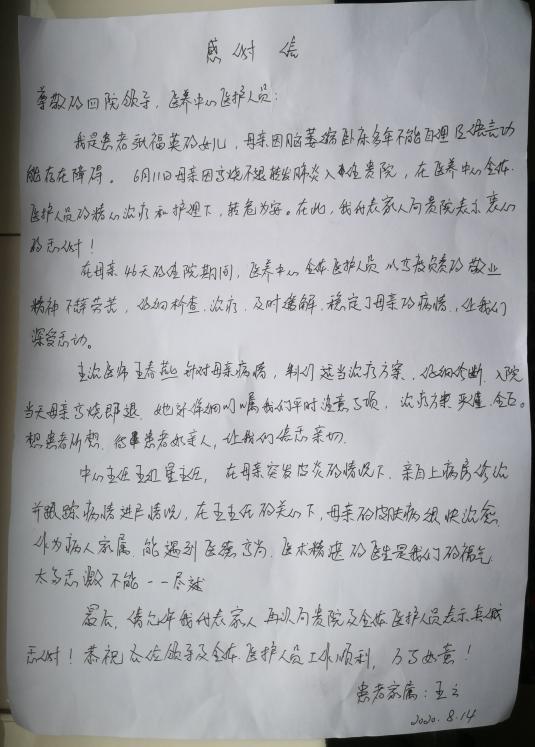 感谢信
尊敬的四院领导，医养中心医护人员：
我是患者张福英的女儿，母亲因脑萎缩卧床多年不能自理且语言功
能存在障碍。6月11日母亲因高烧不退转发肺炎入住贵院，在医养中心全体
医护人员的精心治疗和护理下，转危为安。在此，我代表家人向贵院表示衷心
的感谢！
在母亲46天的住院期间，医养中心全体医护人员以高度负责的敬业
精神不辞劳苦，仔细检查、治疗，及时缓解、稳定了母亲的病情，让我们
深受感动。
主治医师王春燕针对母亲病情，制订适当治疗方案、仔细诊断，入院
当天母亲高烧即退，她还详细叮嘱我们平时注意事项，治疗方案严谨、全面。
想患者所想，待患者如亲人，让我们倍感亲切。
中心主任王红星主任，在母亲突发皮炎的情况下，亲自上病房诊治
并跟踪病情进展情况，在王主任的关心下，母亲的皮肤病很快治愈
作为病人家属，能遇到医德高尚、医术精湛的医生是我们的福气
太多感激不能一一尽述
最后，请允许我代表家人再次向贵院及全体医护人员表示真诚
感谢！恭祝各位领导及全体医护人员工作顺利，万事如意！
患者家属：王立
2020.8.14